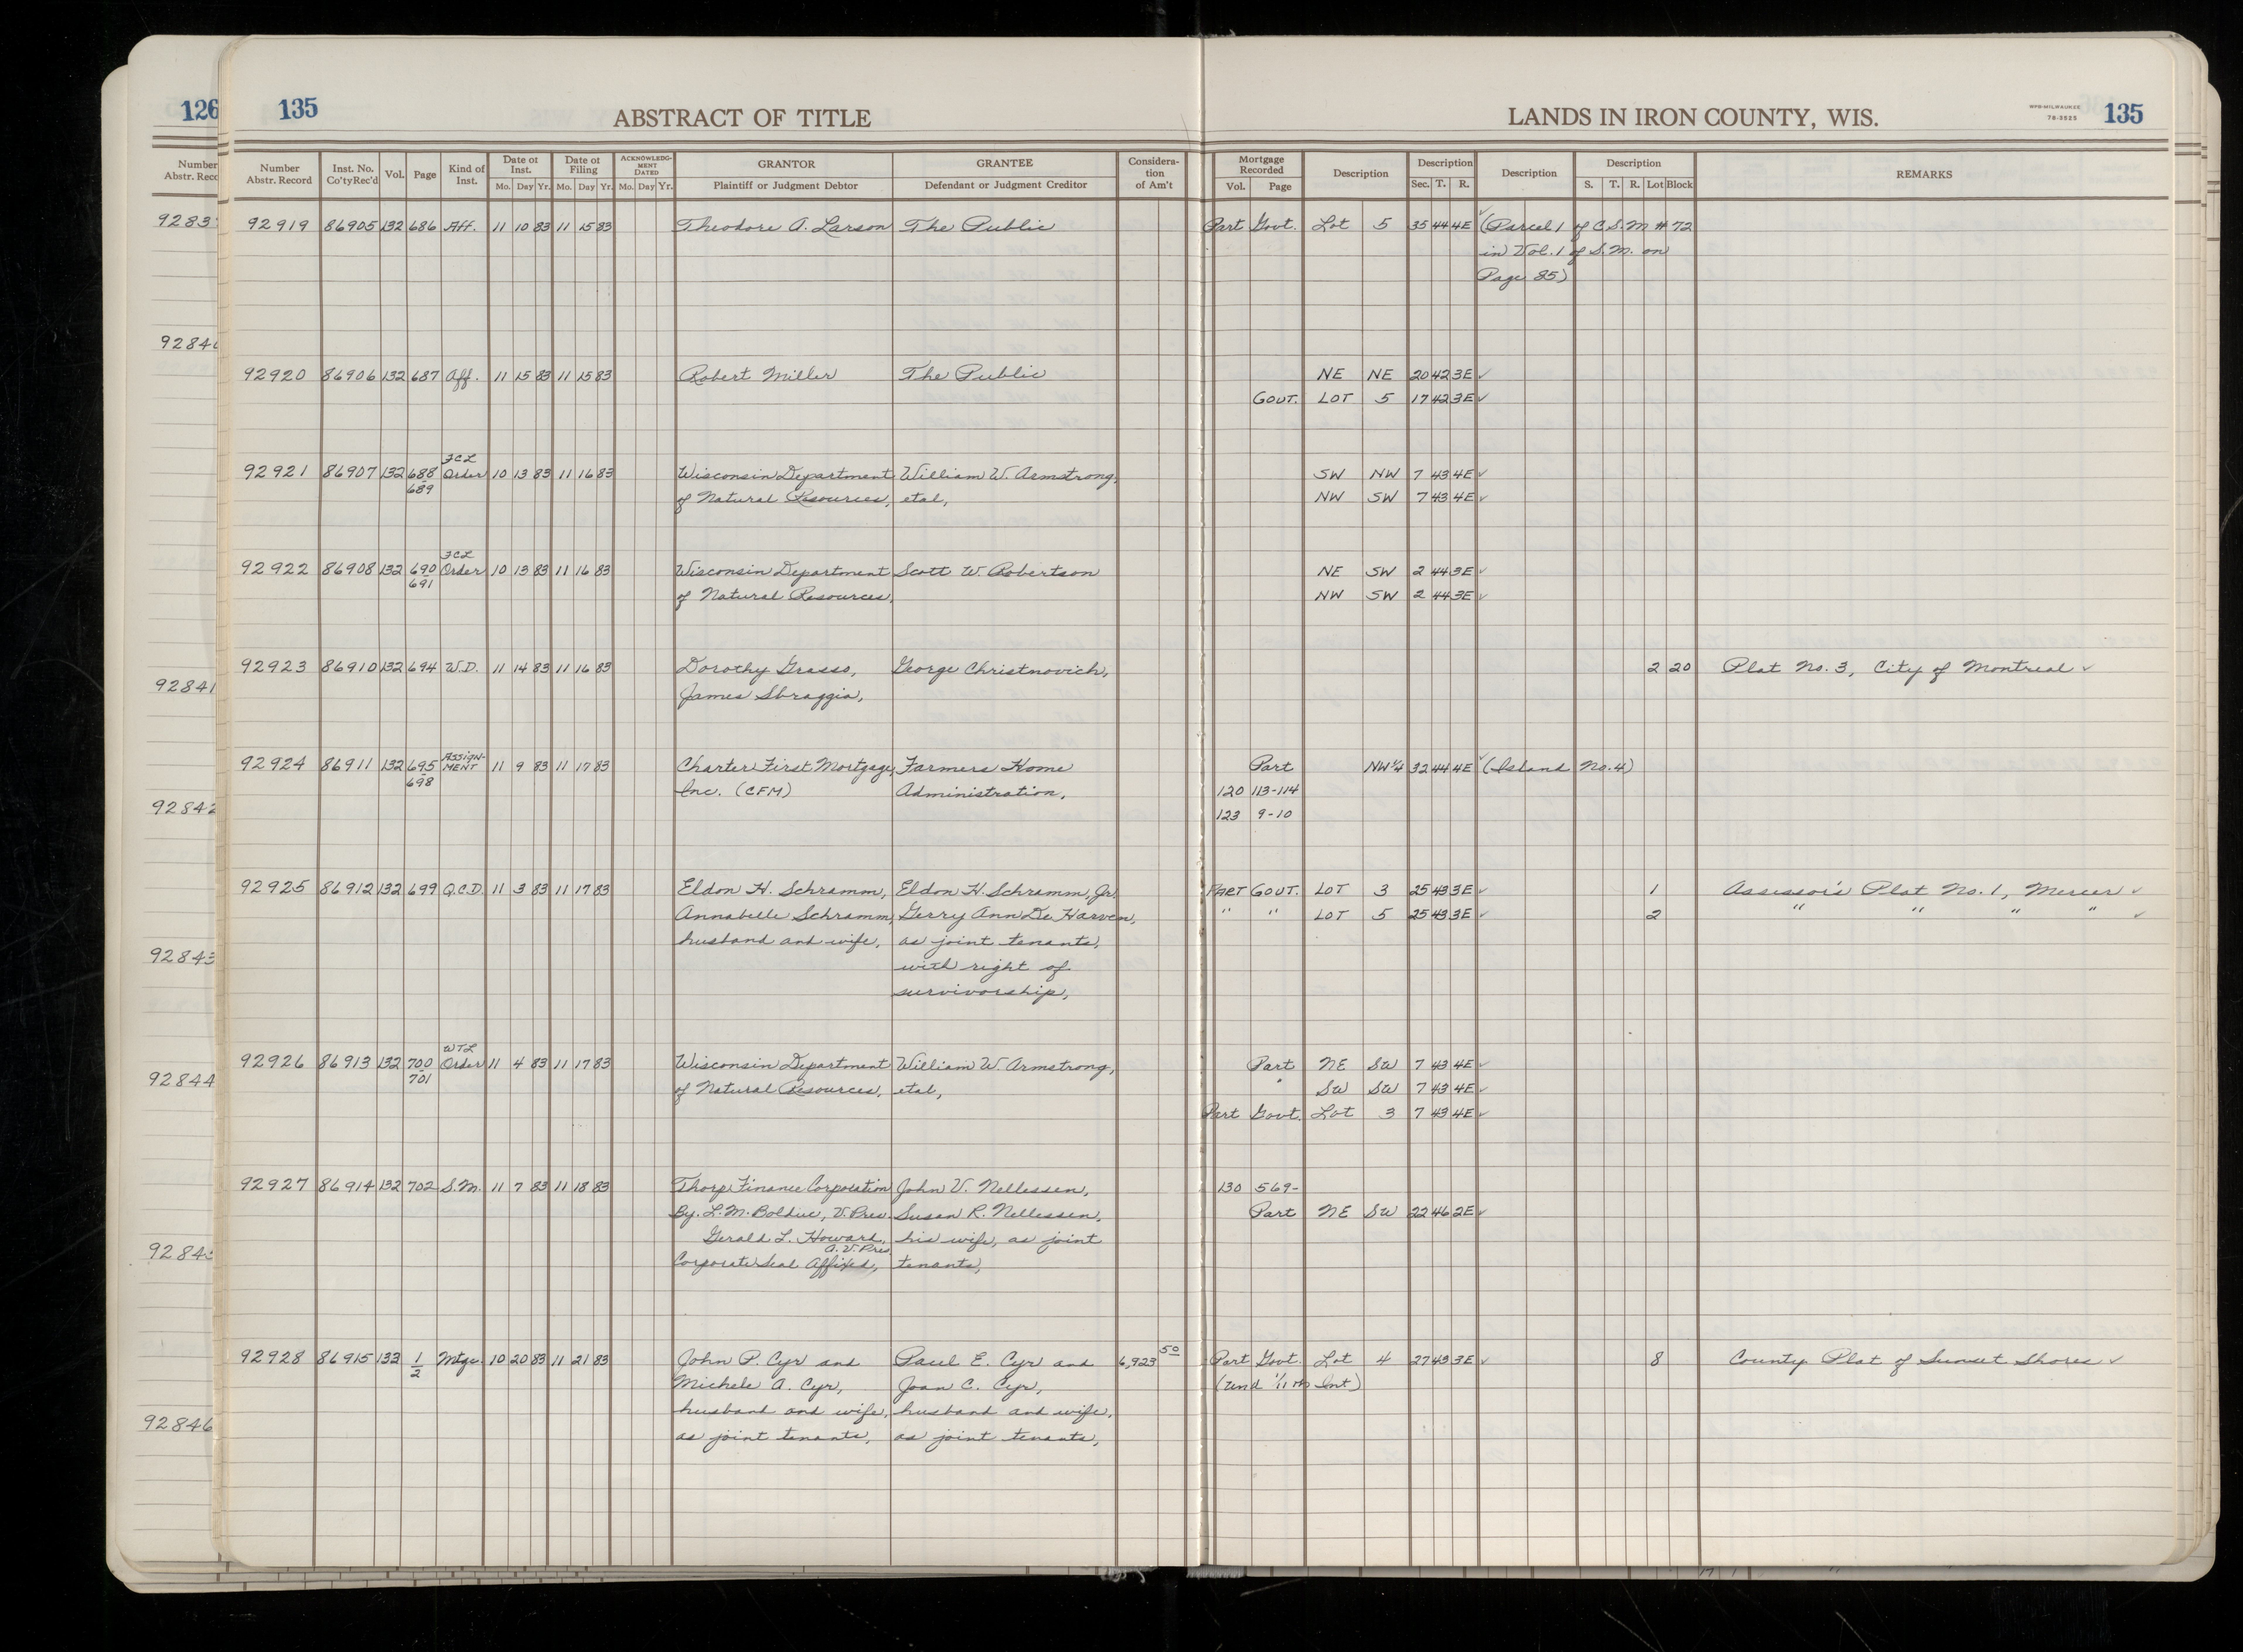 126
Number
Abstr. Reco
9283
9284
92841
92842
92843
92844
9284
92846
135 ABSTRACT OF TITLE LANDS IN IRON COUNTY, WIS. NPB-MILWAUKEE 78-3525 135
Number Abstr. Record Inst. No. Co'ty Rec'd Vol. Page Kind of Inst. Date of Inst. Mo. Day Yr. Date of Filing Mo. Day Yr. ACKNOWLEDGMENT DATED Mo. Day Yr. GRANTOR Plaintiff or Judgment Debtor GRANTEE Defendant or Judgment Creditor Consideration of Am't Mortgage Recorded Vol. Page Description Description Sec. T. R. Description Description S. T. R. Lot Block REMARKS
92919 86905 132 686 Aff. 11 10 83 11 15 83 Theodore A. Larson The Public Part Govt. Lot 5 35 44 4E ✓ (Parcel 1 of C.S.M # 72
in Vol. 1 of S.M. on
Page 85)
92920 86906 132 687 Aff. 11 15 83 11 15 83 Robert Miller The Public NE NE 20 42 3E ✓
GOUT. LOT 5 17 42 3E ✓
FCL
92921 86907 132 688 Order 10 13 83 11 16 83 Wisconsin Department William W. Armstrong, SW NW 7 43 4E ✓
689 of Natural Resources, etal, NW SW 7 43 4E ✓
FCL
92922 86908 132 690 Order 10 13 83 11 16 83 Wisconsin Department Scott W. Robertson NE SW 2 44 3E ✓
691 of Natural Resources, NW SW 2 44 3E ✓
92923 86910 132 694 W.D. 11 14 83 11 16 83 Dorothy Grasso, George Christnovich, 2 20 Plat No. 3, City of Montreal ✓
James Sbraggia,
92924 86911 132 695 ASSIGN-MENT 11 9 83 11 17 83 Charter First Mortgage, Farmers Home Part NW 1/4 32 44 4E ✓ (Island No. 4)
698 Inc. (CFM) Administration, 120 113-114
123 9-10
92925 86912 132 699 Q.C.D. 11 3 83 11 17 83 Eldon H. Schramm, Eldon H. Schramm, Jr. PART GOUT. LOT 3 25 43 3E ✓ 1 Assessor's Plat No. 1, Mercer ✓
Annabelle Schramm, Gerry Ann De Harven, " " LOT 5 25 43 3E ✓ 2 " " " " ✓
husband and wife, as joint tenants,
with right of
survivorship,
WTL
92926 86913 132 700 Order 11 4 83 11 17 83 Wisconsin Department William W. Armstrong, Part NE SW 7 43 4E ✓
701 of Natural Resources, etal, " SW SW 7 43 4E ✓
Part Govt. Lot 3 7 43 4E ✓
92927 86914 132 702 S.M. 11 7 83 11 18 83 Thorp Finance Corporation John V. Nellessen, 130 569-
By. L.M. Bolduc, V. Pres. Susan R. Nellessen, Part NE SW 22 46 2E ✓
Gerald L. Howard, his wife, as joint
A. V. Pres.
Corporate Seal Affixed, tenants,
92928 86915 133 1/2 Mtge. 10 20 83 11 21 83 John P. Cyr and Paul E. Cyr and 6,923 50 Part Govt. Lot 4 27 43 3E ✓ 8 County Plat of Sunset Shores ✓
Michele A. Cyr, Joan C. Cyr, (Und 1/11th Int)
husband and wife, husband and wife,
as joint tenants, as joint tenants,